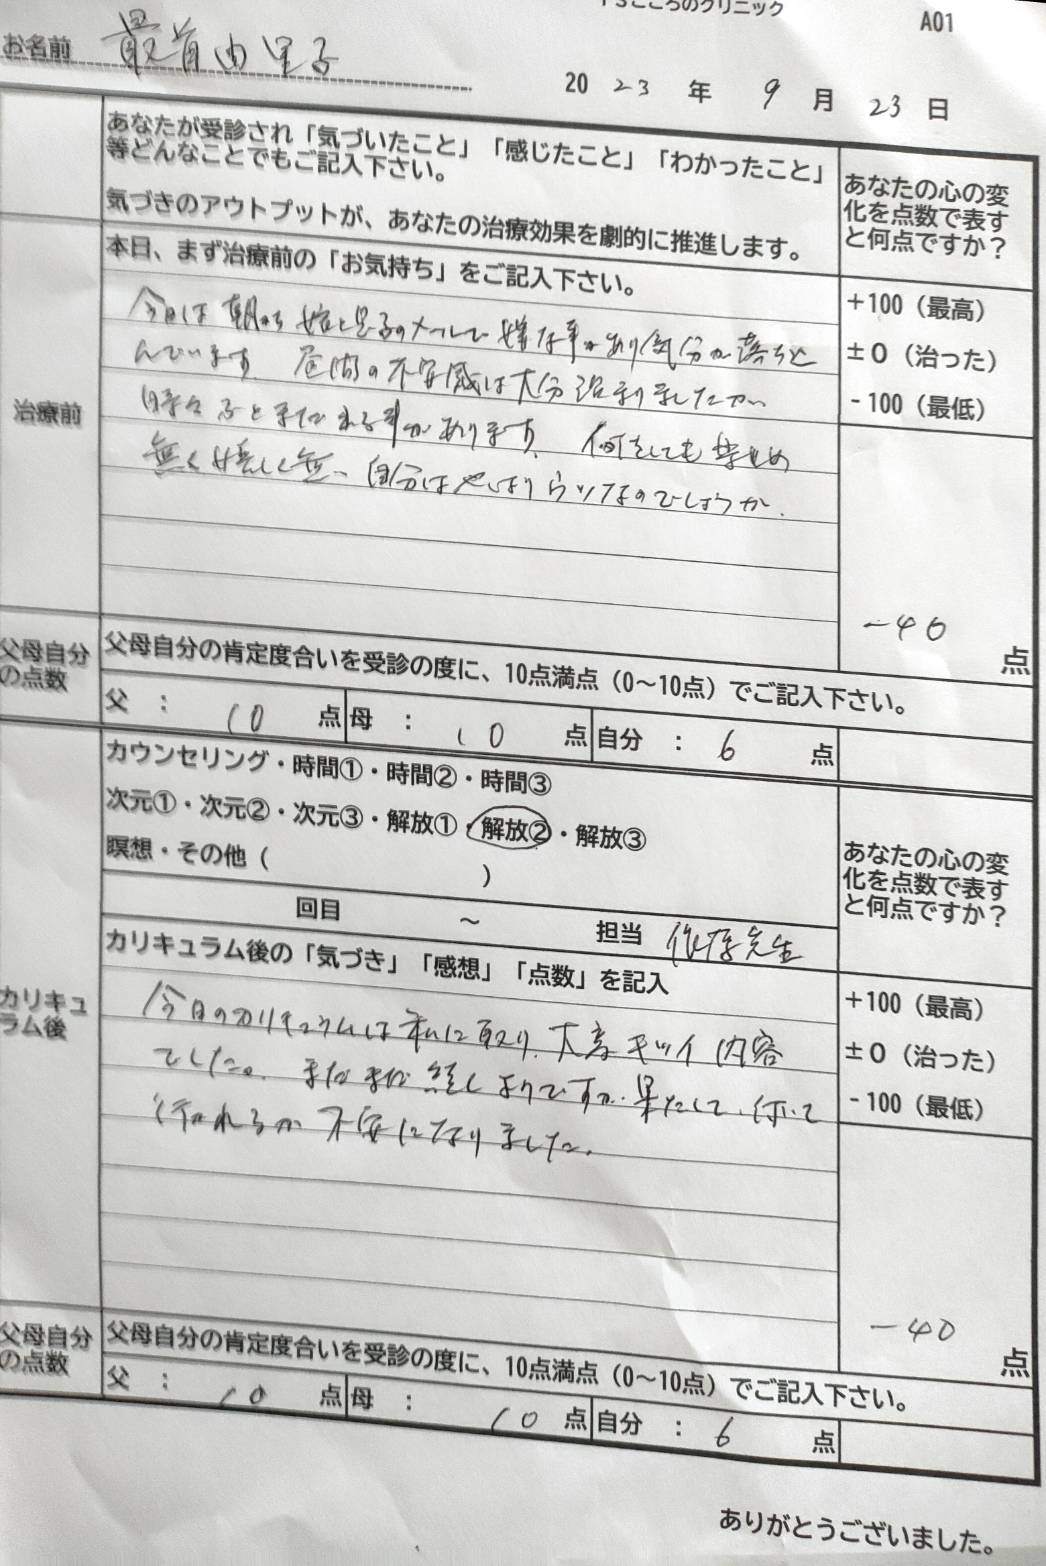 YSこころのクリニック
A01
お名前 最首由里子
2023年 9月 23日
あなたが受診され「気づいたこと」「感じたこと」「わかったこと」
等どんなことでもご記入下さい。
気づきのアウトプットが、あなたの治療効果を劇的に推進します。
あなたの心の変
化を点数で表す
と何点ですか？
治療前
本日、まず治療前の「お気持ち」をご記入下さい。
今日は朝から娘と息子のメールで嫌な事があり気分が落ち込
んでいます。昼間の不安感は大分治まりましたが
時々ふとまだれる事があります。何をしても楽しめ
無く嬉しく無い 自分はやはりウツなのでしょうか。
+100（最高）
±0（治った）
-100（最低）
-40 点
父母自分
の点数
父母自分の肯定度合いを受診の度に、10点満点（0～10点）でご記入下さい。
父 ： 10 点 母 ： 10 点 自分 ： 6 点
カウンセリング・時間①・時間②・時間③
次元①・次元②・次元③・解放①・解放②・解放③
瞑想・その他（ ）
回目 ～ 担当 先生
あなたの心の変
化を点数で表す
と何点ですか？
カリキュ
ラム後
カリキュラム後の「気づき」「感想」「点数」を記入
今日のカリキュラムは私に取り、大変キツイ内容
でした。まだまだ続くようですが、果たして、付いて
行かれるか不安になりました。
+100（最高）
±0（治った）
-100（最低）
-40 点
父母自分
の点数
父母自分の肯定度合いを受診の度に、10点満点（0～10点）でご記入下さい。
父 ： 10 点 母 ： 10 点 自分 ： 6 点
ありがとうございました。